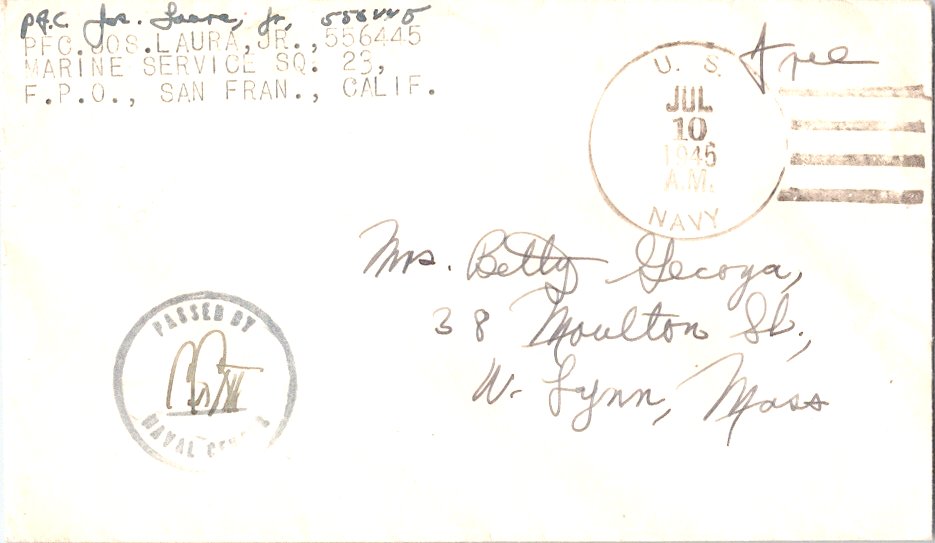 Pfc. Jos. Laura, Jr, 556445
PFC.JOS.LAURA,JR.,556445
MARINE SERVICE SQ. 23,
F.P.O., SAN FRAN., CALIF.
Free
U. S.
JUL
10
1945
A.M.
NAVY
Mrs. Betty Gecoya,
38 Moulton St.,
W. Lynn, Mass
PASSED BY
NAVAL